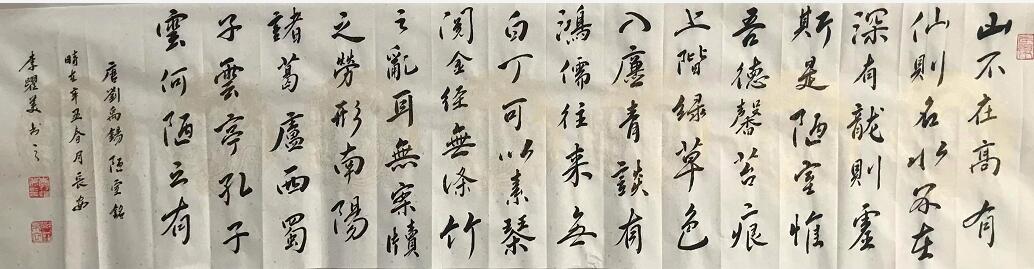 山不在高有
仙則名水不在
深有龍則靈
斯是陋室惟
吾德馨苔痕
上階緑草色
入廉青談有
鴻儒往来無
白丁可以素琴
閲金經無絲竹
之亂耳無案牘
之勞形南陽
諸葛廬西蜀
子雲亭孔子
雲何陋之有
唐劉禹錫陋室銘
時在辛丑春月長安
李躍美书之